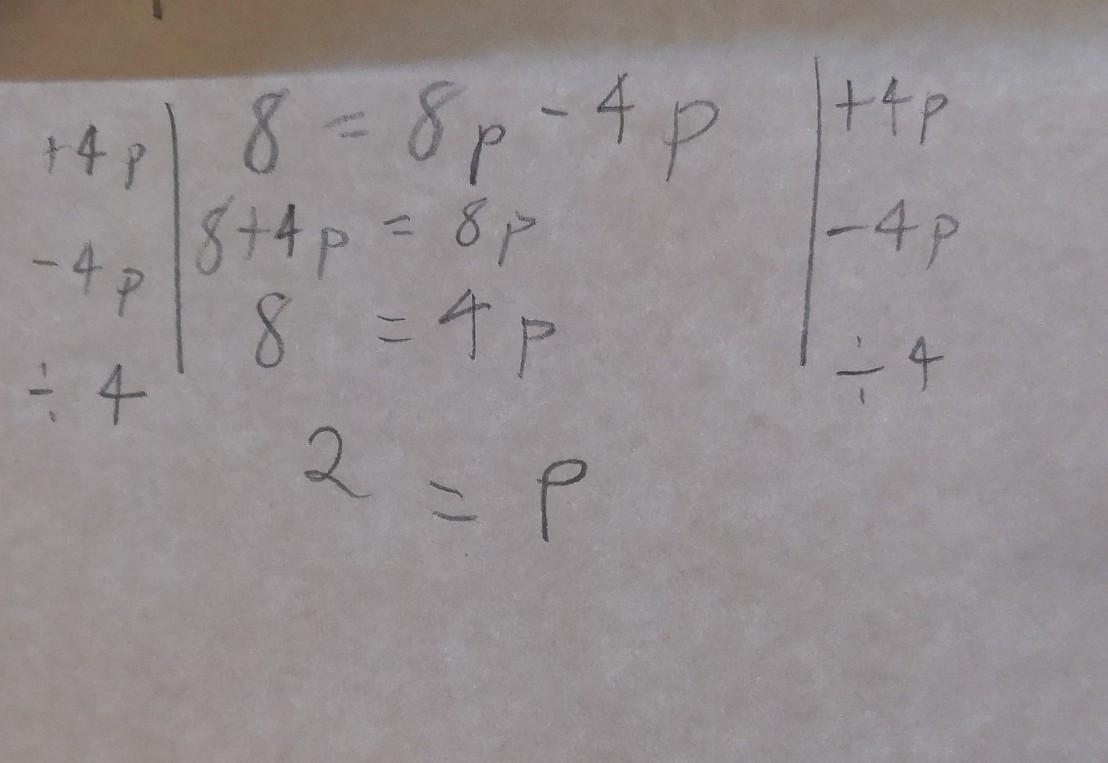 +4p | 8 = 8p - 4p | +4p
-4p | 8+4p = 8p | -4p
÷ 4 | 8 = 4p | ÷ 4
2 = p